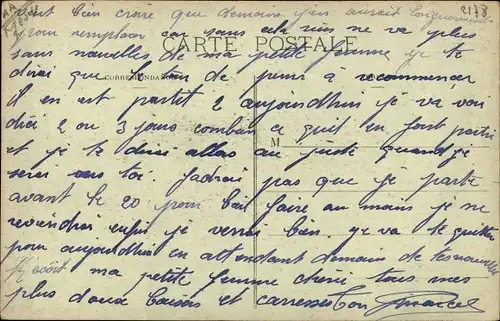 vent bien croire que demain j'en aurait
2178
pour remplacer car sans cela rien ne va plus
CARTE POSTALE
sans nouvelles de ma petite femme je te
dirai que le de a recommencer
CORRESPONDANCE
il en est partit 2 aujourdhui je va voir
dici 2 ou 3 jours combien ce quil en fout partir
M
et je te dirai allas au juste quand je
serai vers toi. pas que je parte
avant le 20 pour bail faire au mais je ne
reviendrai enfin je verrai bien. je va te quitter
pour aujourdhui en attendant demain de tes nouvelles
ma petite femme cheri tous mes
plus doux baisers et carresses ton Marcel